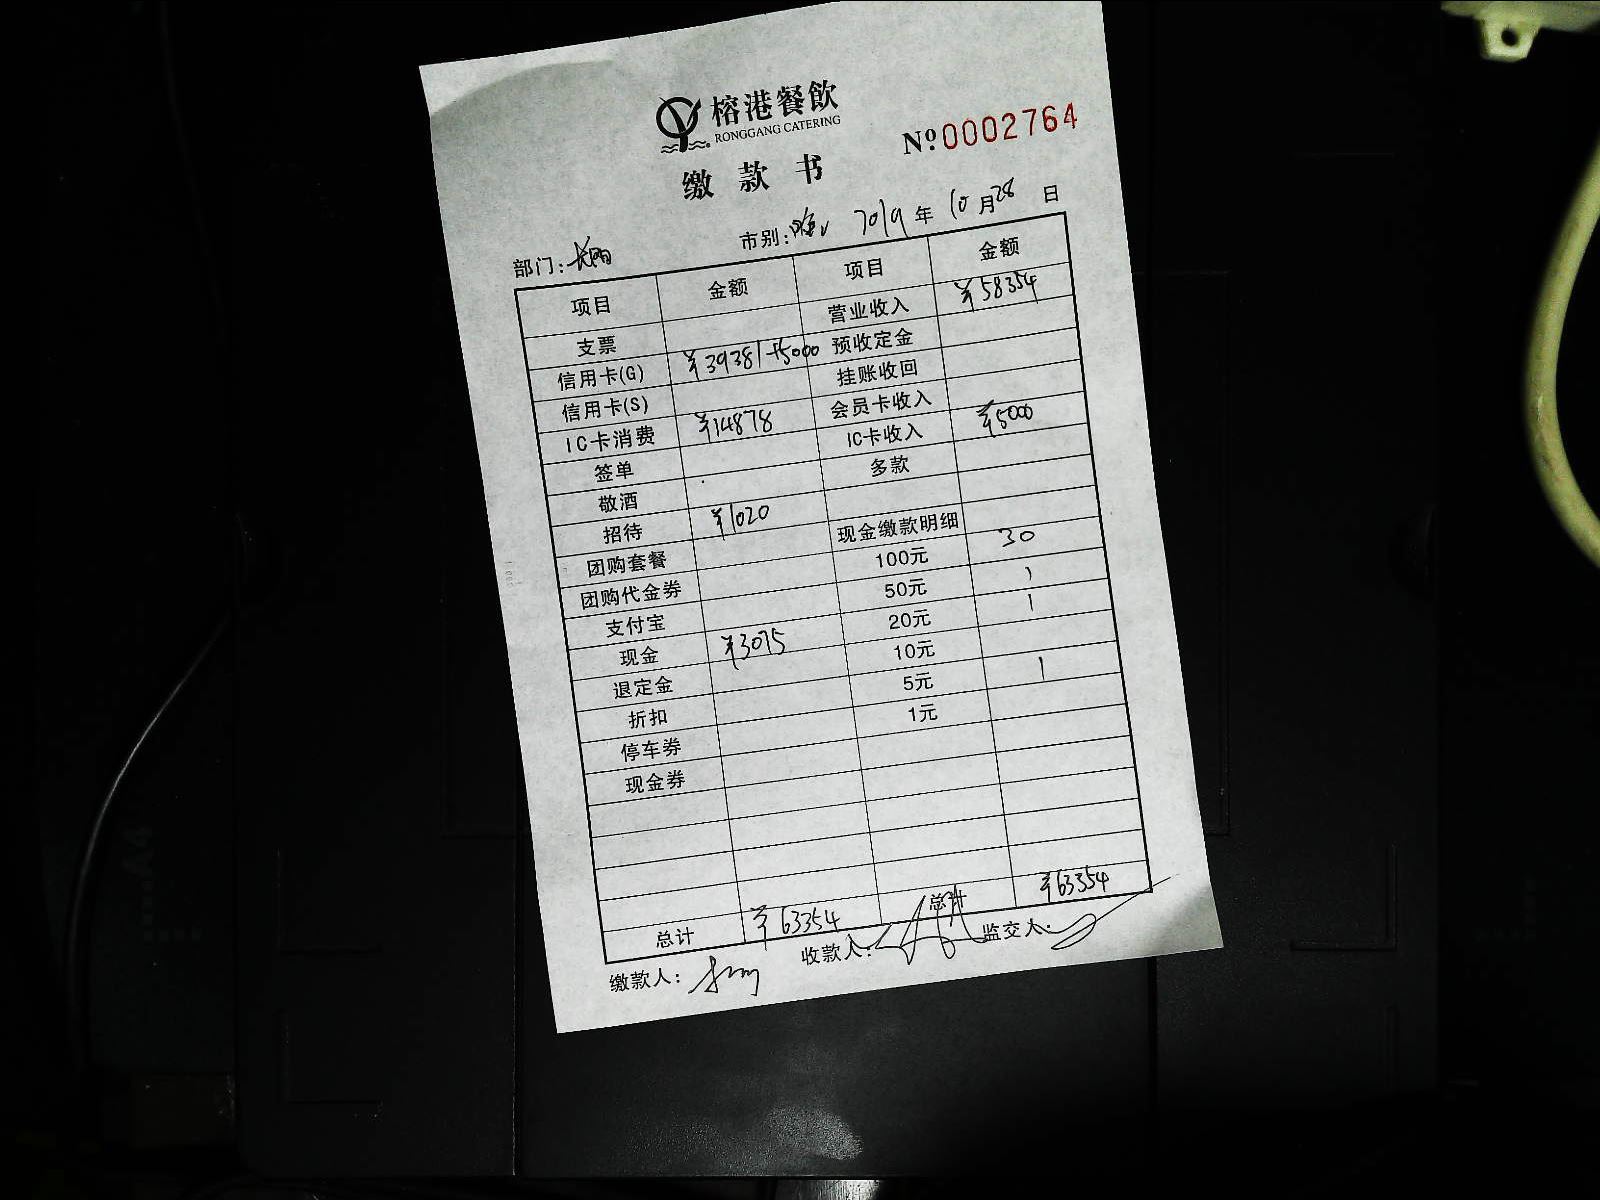 榕港餐飲
RONGGANG CATERING
Nº 0002764
缴款书
部门: 市别: 2019年10月28日
项目 金额 项目 金额
支票 营业收入 ¥58354
信用卡(G) ¥39381+5000 预收定金
信用卡(S) 挂账收回
IC卡消费 ¥14878 会员卡收入
签单 IC卡收入 ¥5000
敬酒 多款
招待 ¥1020
团购套餐 现金缴款明细
团购代金券 100元 30
支付宝 50元 1
现金 ¥3075 20元 1
退定金 10元
折扣 5元 1
停车券 1元
现金券
总计 ¥63354 总计 ¥63354
缴款人: 收款人: 监交人: